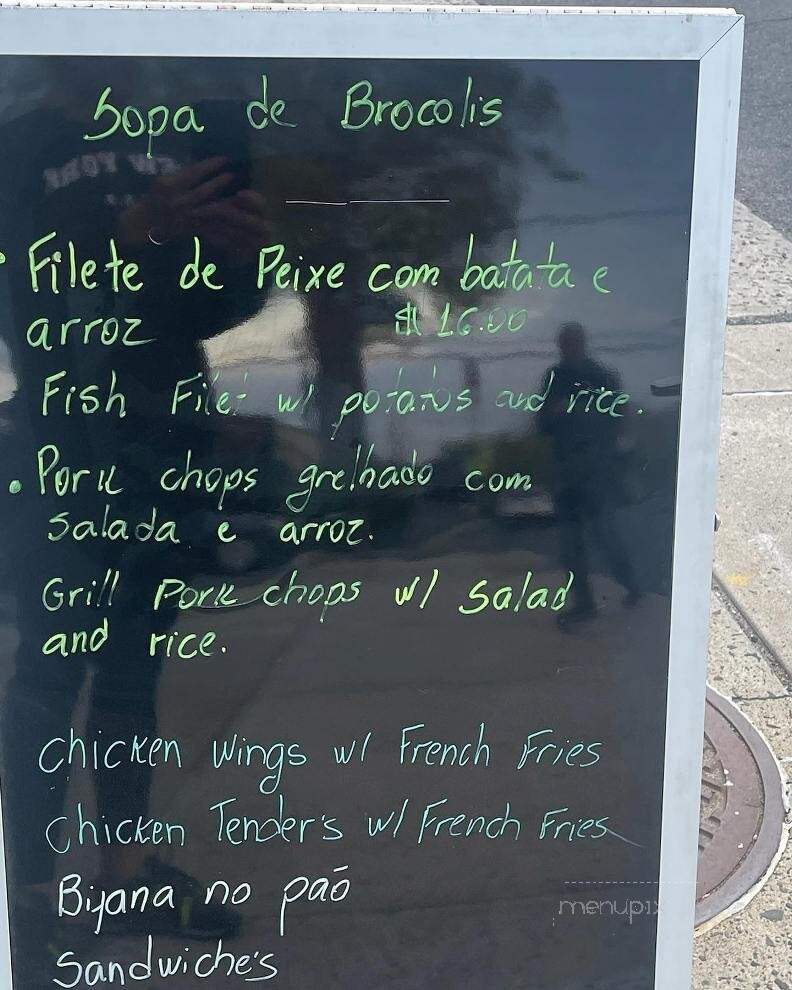 Sopa de Brocolis
Filete de Peixe com batata e
arroz $ 16.00
Fish Filet w/ potatos and rice.
• Pork chops grelhado com
salada e arroz.
Grill Pork chops w/ salad
and rice.
Chicken Wings w/ French Fries
Chicken Tender's w/ French Fries
Bijana no paõ
Sandwiche's
menupix